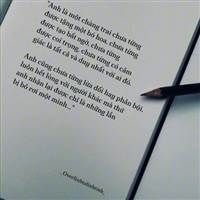 "Anh là một chàng trai chưa từng
được tặng một bó hoa, chưa từng
được tạo bất ngờ, chưa từng
được coi trọng, chưa từng có cảm
giác là tất cả và duy nhất với ai đó.
Anh cũng chưa từng lừa dối hay phản bội,
luôn hết lòng với người khác mà thứ
anh nhận lại được chỉ là những lần
bị bỏ rơi một mình..."